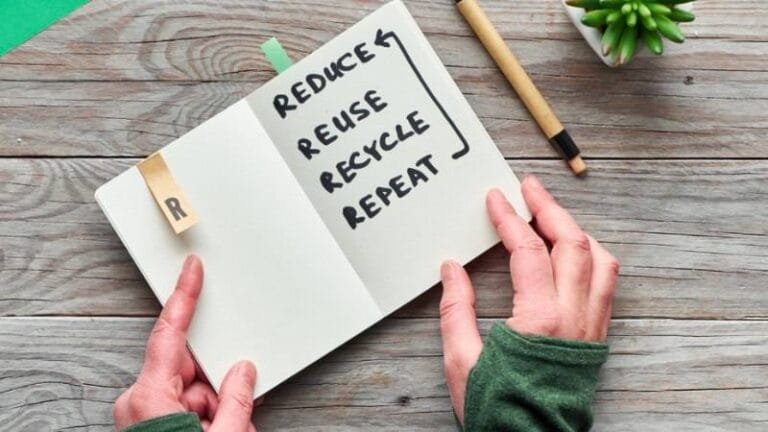 R
REDUCE
REUSE
RECYCLE
REPEAT